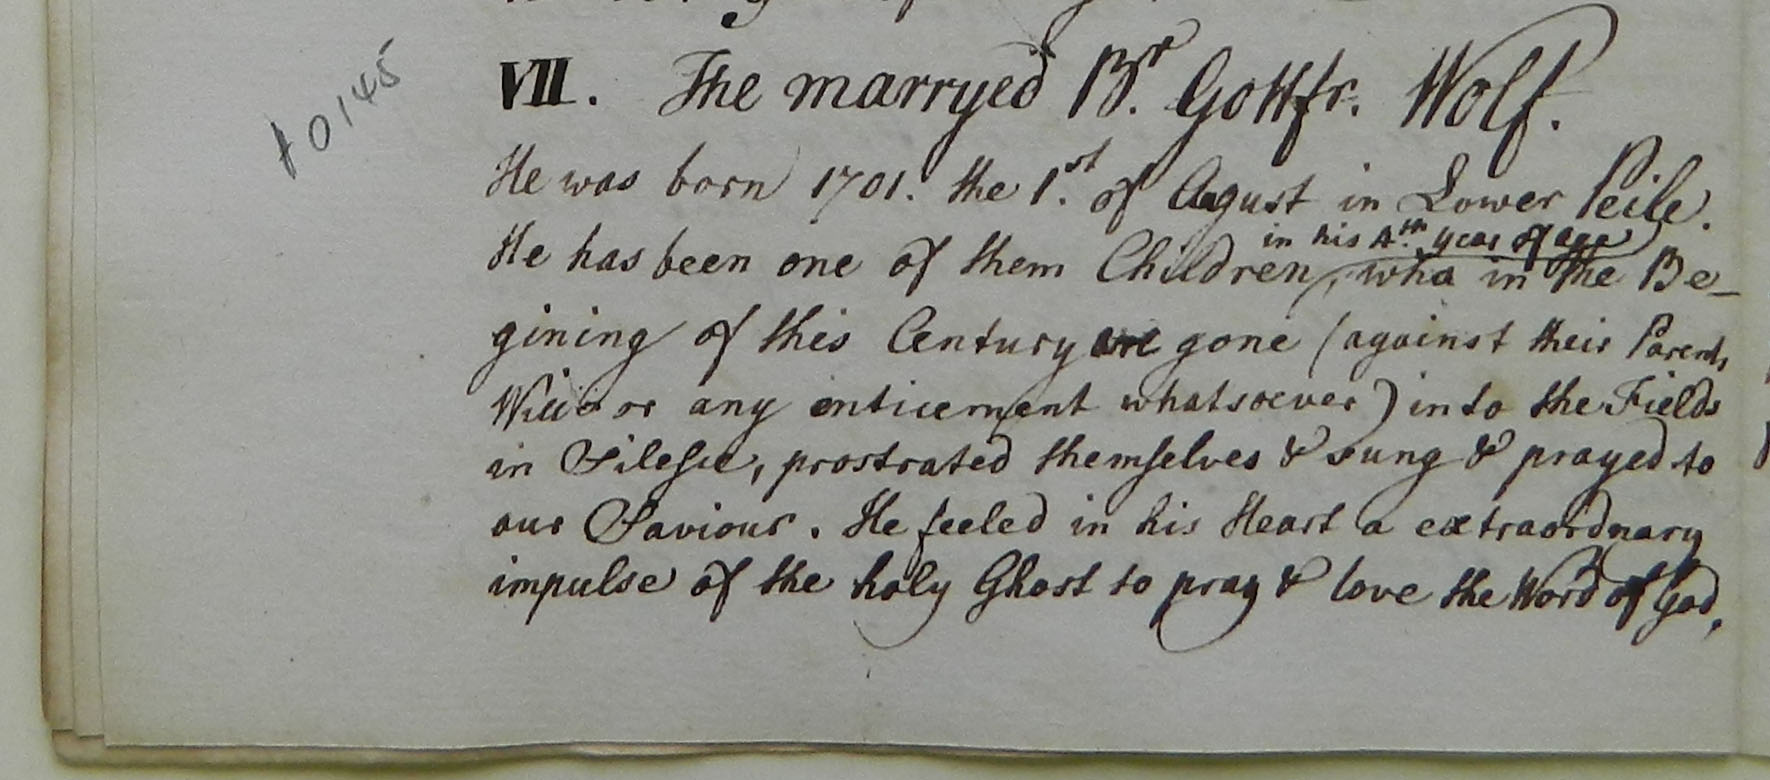 10145
VII. The marryed Br. Gottfr. Wolf.
He was born 1701. the 1.st of August in Lower Peile.
in his 4.th year of age
He has been one of them Children, who in the Be-
gining of this Century are gone (against their Parents
Will or any enticement whatsoever) into the Fields
in Silesie, prostrated themselves & sung & prayed to
our Saviour. He feeled in his Heart a extraordnary
impulse of the holy Ghost to pray & love the Word of God,